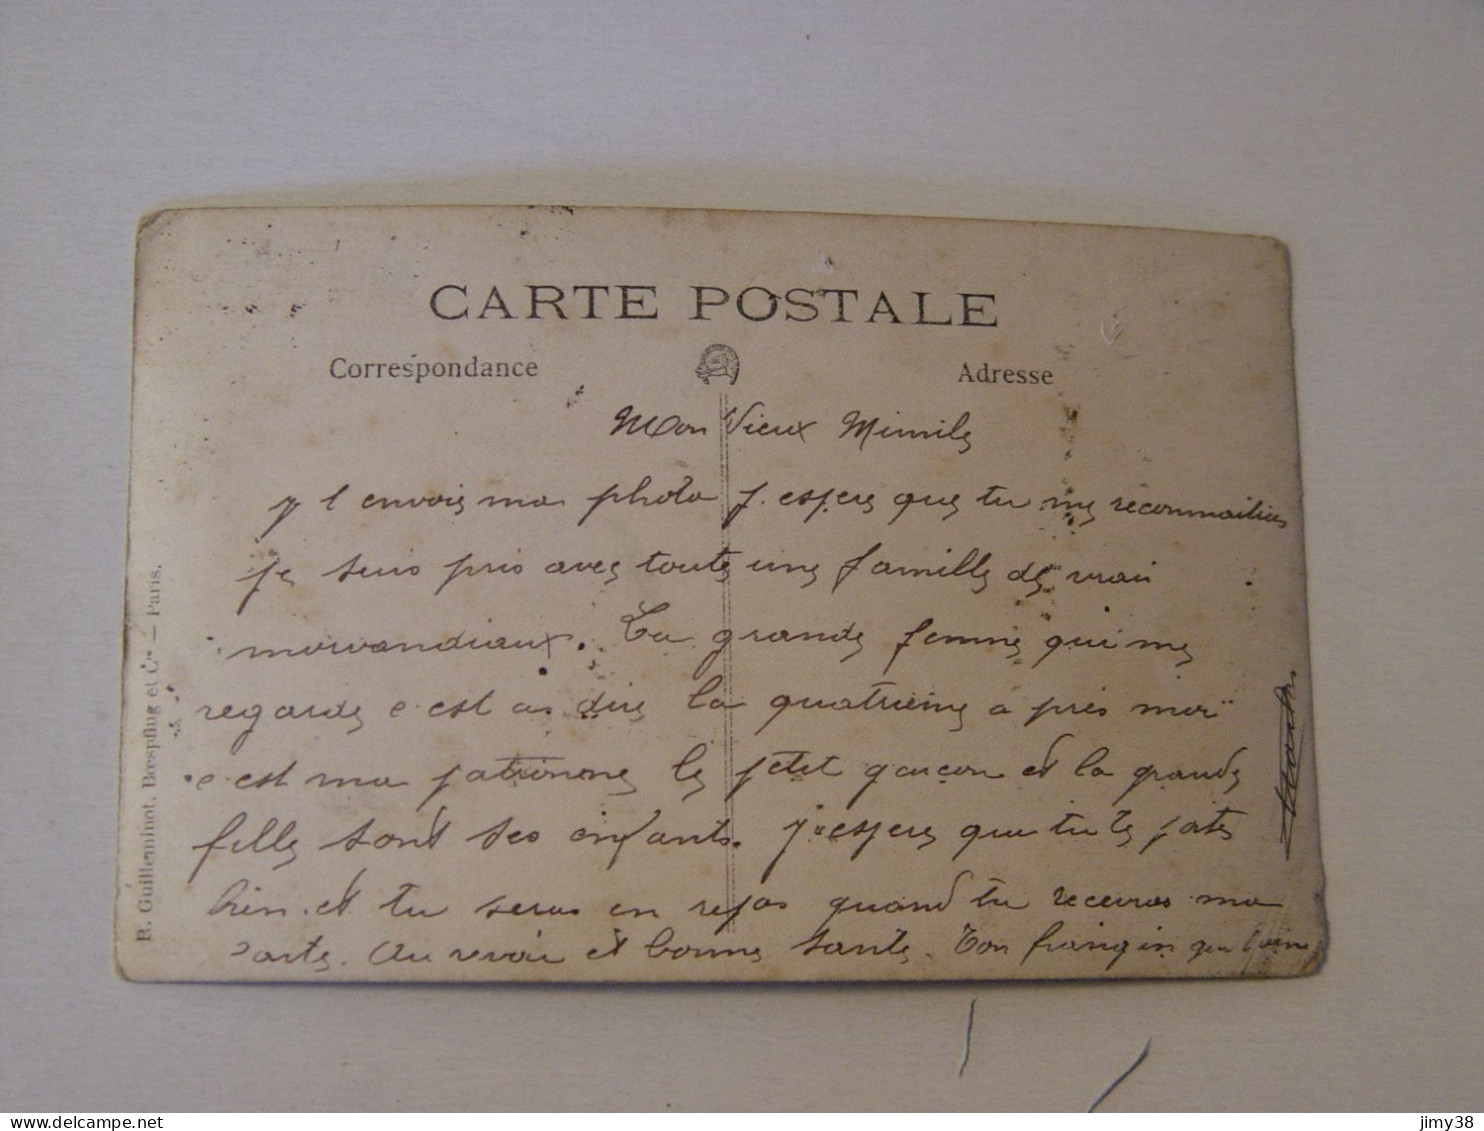 CARTE POSTALE
Correspondance
Adresse
Mon Vieux Mimile
j t envois ma photo j. espere que tu me reconnaitras
je suis pris avec toute une famille de vrai
morvandiaux. La grande femme qui me
regarde c est a dire la quatrieme a près moi
c est ma patronne le petit garçon et la grande
fille sont ses enfants. j'espere que tu te porte
bien. et tu seras en repos quand tu recevras ma
carte. Au revoir et bonne sante. Ton frangin qui t'aime
R. Guilleminot, Bœspflug et Cie — Paris.
delcampe.net
jimy38